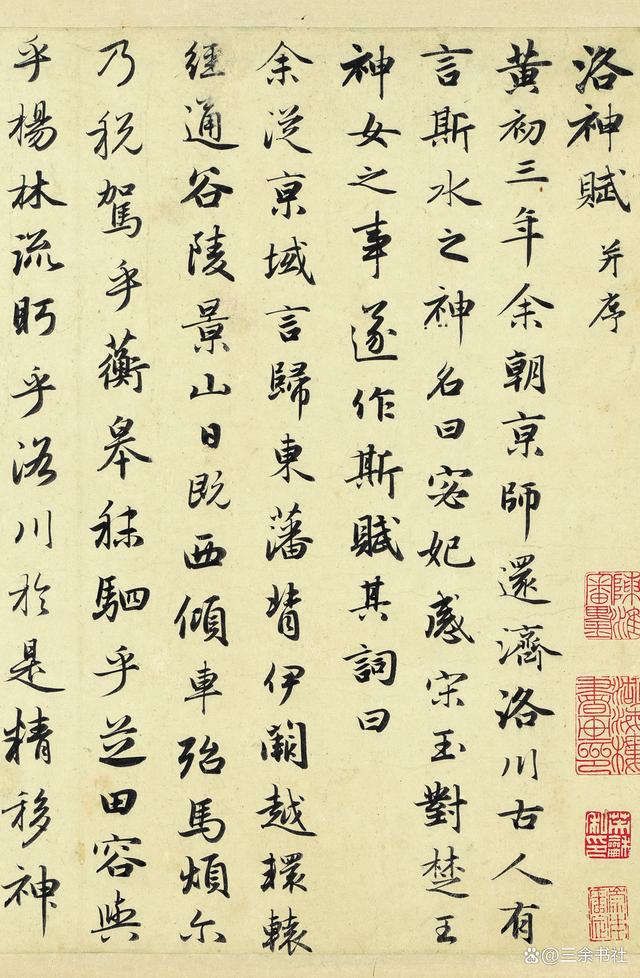 洛神賦 并序
黃初三年余朝京師還濟洛川古人有
言斯水之神名曰宓妃感宋玉對楚王
神女之事遂作斯賦其詞曰
余從京域言歸東藩背伊闕越轘轅
經通谷陵景山日既西傾車殆馬煩尔
乃税駕乎蘅皋秣駟乎芝田容與
乎楊林流眄乎洛川於是精移神
陳淮
百度@三余书社